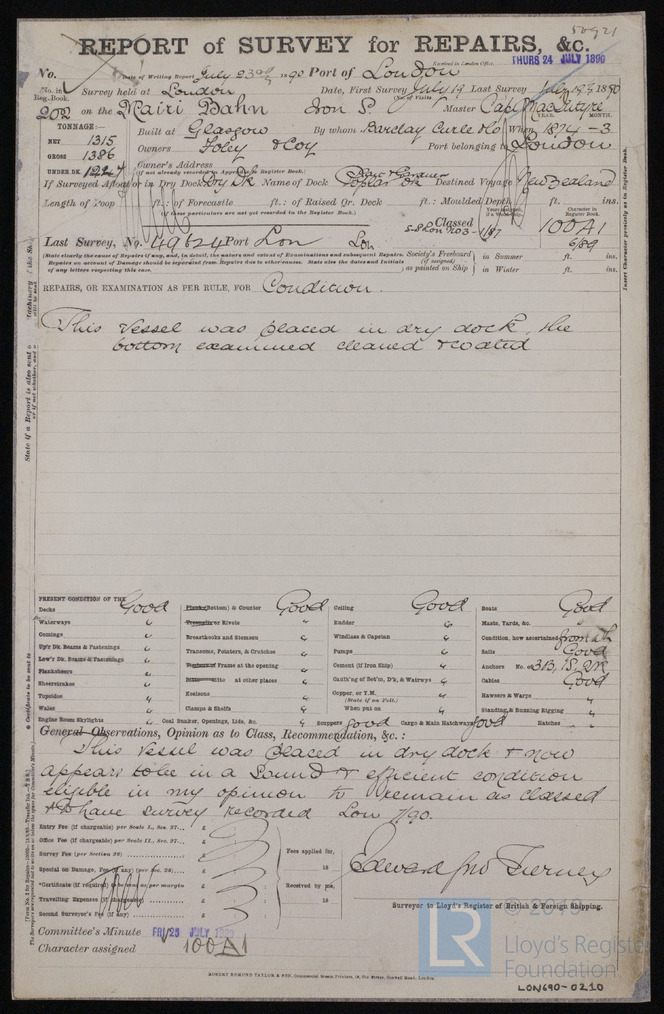 50921
REPORT of SURVEY for REPAIRS, &c.
Received in London Office THURS 24 JULY 1890
No. Date of Writing Report July 23rd 1890 Port of London
No. in Reg. Book. Survey held at London Date, First Survey July 19 Last Survey July 19th 1890
(No. of Visits
202 on the Mairi Bahn Iron S. Master Capt MacIntyre
TONNAGE:— YEAR. MONTH.
NET 1315 Built at Glasgow By whom Barclay Curle & Co When 1874-3
GROSS 1386 Owners Foley & Coy Port belonging to London
UNDER DK. Owner's Address
(if not already recorded in Appendix to Register Book.)
If Surveyed Afloat or in Dry Dock Dry Dk Name of Dock Poplar Dk Destined Voyage New Zealand
Length of Poop ft.: of Forecastle ft.: of Raised Qr. Deck ft.: Moulded Depth ft. ins.
(if these particulars are not yet recorded in the Register Book.)
Classed S.S. Lon No 3 - 1/87 100A1
6/89
Character in Register Book.
Last Survey, No. 49624 Port Lon Lon
(State clearly the cause of Repairs if any, and, in detail, the nature and extent of Examinations and subsequent Repairs.
Repairs on account of Damage should be separated from Repairs due to other causes. State also the dates and Initials
of any letters respecting this case.
Society's Freeboard (if assigned) as painted on Ship in Summer ft. ins.
in Winter ft. ins.
REPAIRS, OR EXAMINATION AS PER RULE, FOR Condition.
This Vessel was placed in dry dock, the
bottom examined cleaned & coated
PRESENT CONDITION OF THE
Decks Good
Waterways "
Comings "
Up'r Dk. Beams & Fastenings "
Low'r Dk. Beams & Fastenings "
Planksheers "
Sheerstrakes "
Topsides "
Wales "
Engine Room Skylights "
Plank (Bottom) & Counter Good
Treenails or Rivets "
Breasthooks and Stemson "
Transoms, Pointers, & Crutches "
Timbers of Frame at the opening "
Ditto at other places "
Keelsons "
Clamps & Shelfs "
Coal Bunker, Openings, Lids, &c. "
Ceiling Good
Rudder "
Windlass & Capstan "
Pumps "
Cement (if Iron Ship) "
Caulk'ng of Bot'm, D'k, & Watrwys "
Copper, or Y.M. (State if on Felt.)
When put on
Scuppers Good Cargo & Main Hatchways Good
Boats Good
Masts, Yards, &c. "
Condition, how ascertained from
Sails Good
Anchors No. of 3B, 1S, 2K
Cables Good
Hawsers & Warps "
Standing & Running Rigging "
Hatches "
General Observations, Opinion as to Class, Recommendation, &c.:
This vessel was placed in dry dock & now
appears to be in a Sound & efficient condition
eligible in my opinion to remain as classed
& to have survey recorded Lon 7/90.
Entry Fee (if chargeable) per Scale I., Sec. 27... £
Office Fee (if chargeable) per Scale II., Sec. 27... £
Survey Fee (per Section 28) £
Special on Damage, Fee if any (per Sec. 28) £
*Certificate (if required) to be sent as per margin
Travelling Expenses (if chargeable) £
Second Surveyor's Fee (if any) £
Fees applied for,
18
Received by me,
18
Edward Jno Tierney
Surveyor to Lloyd's Register of British & Foreign Shipping.
Committee's Minute FRI 25 JULY 1890
Character assigned 100A1
LR
© 2019
Lloyd's Register
Foundation
LON690-0210